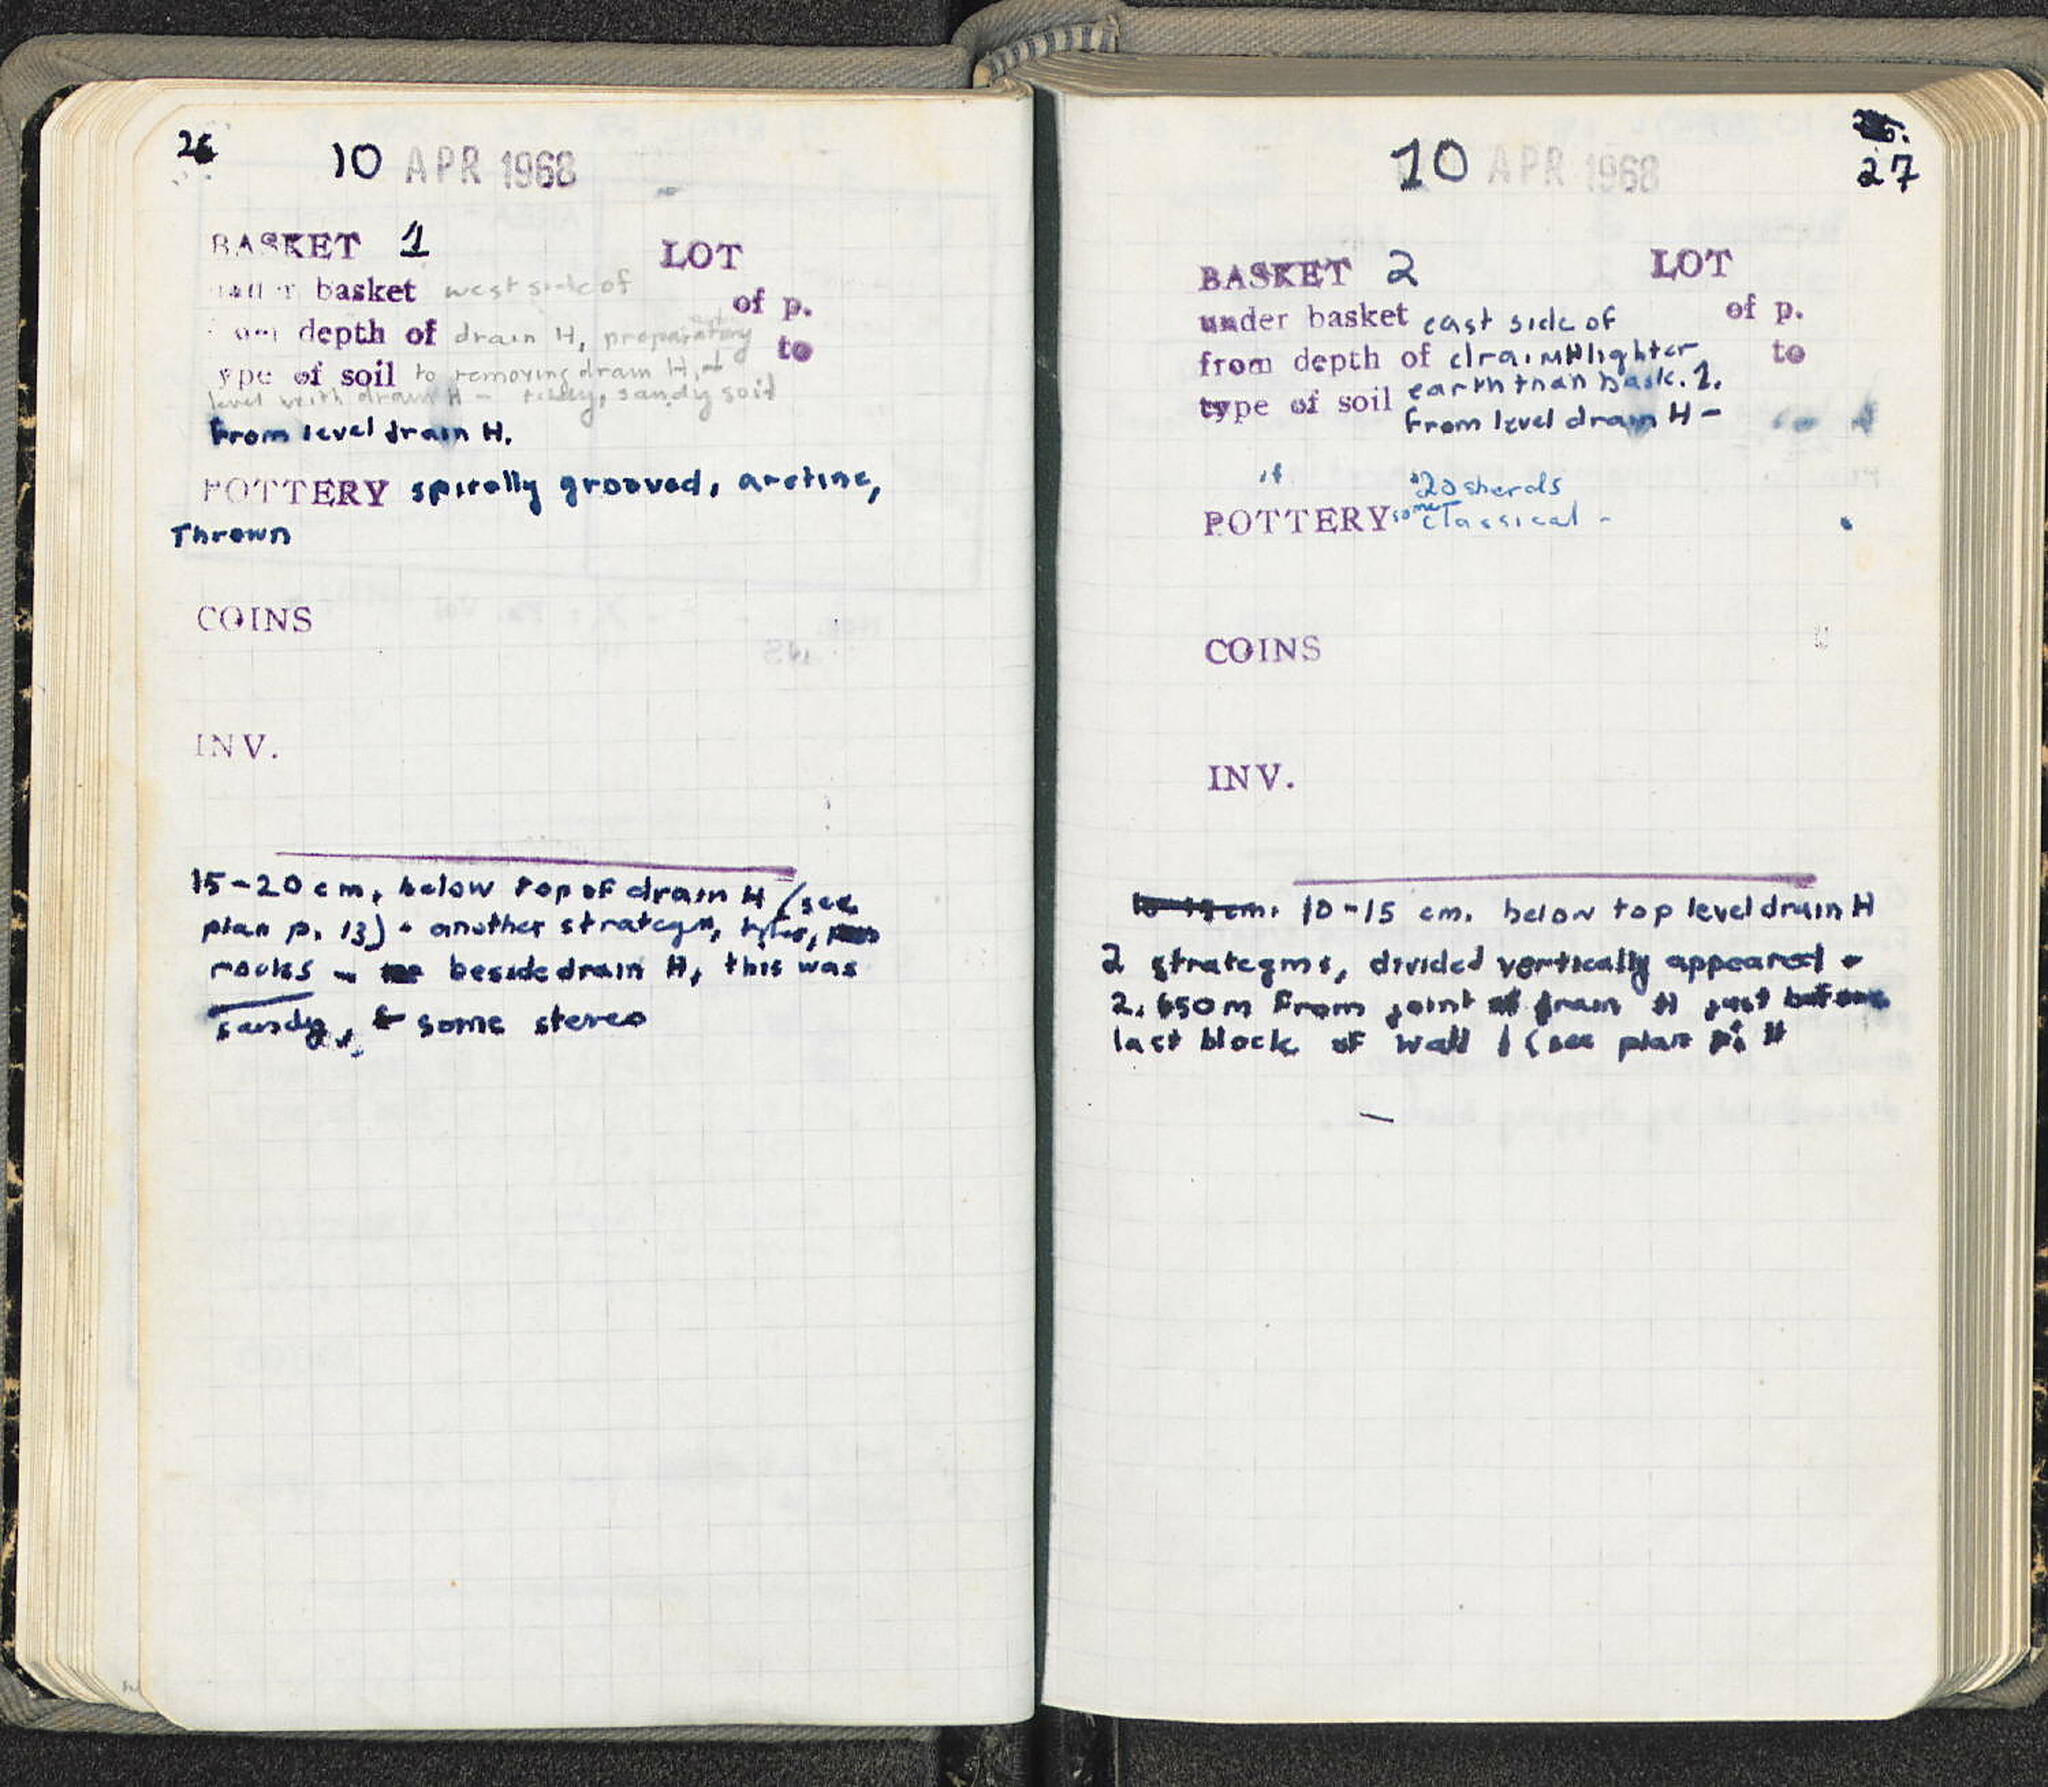 26
10 APR 1968
BASKET 1 LOT
under basket west side of of p.
from depth of drain H, preparatory to
type of soil to removing drain H,
level with drain H - sandy soil
From level drain H.
POTTERY spirally grooved, aretine,
Thrown
COINS
INV.
15-20 cm. below top of drain H (see
plan p. 13) - another strategm,
rocks - beside drain H, this was
sandy, some stereo
27
10 APR 1968
BASKET 2 LOT
under basket east side of of p.
from depth of drain H lighter to
earth than bask. 1.
type of soil
From level drain H -
if 20 sherds
POTTERY some classical -
COINS
INV.
10-15 cm. below top level drain H
2 strategms, divided vertically appeared -
2.650m From joint drain H just before
last block of wall 1 (see plan p.